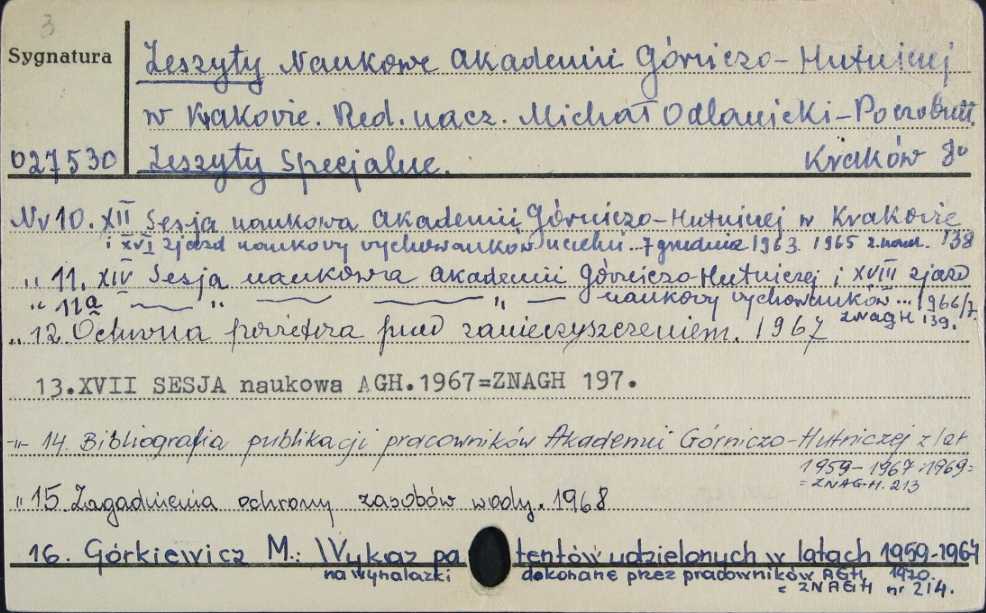 3
Sygnatura
Zeszyty Naukowe Akademii Górniczo-Hutniczej
w Krakowie. Red. nacz. Michał Odlanicki-Poczobutt.
027530 Zeszyty Specjalne. Kraków 8°
Nr 10. XII Sesja naukowa Akademii Górniczo-Hutniczej w Krakowie
i XVI zjazd naukowy wychowanków uczelni.. 7 grudnia 1963. 1965 138
„ 11. XIV Sesja naukowa Akademii Górniczo-Hutniczej i XVIII zjazd
naukowy wychowanków... 1966/7.
„ 11a „ „ ZNAGH 139.
„ 12. Ochrona powietrza przed zanieczyszczeniem. 1967
13.XVII SESJA naukowa AGH.1967=ZNAGH 197.
-„- 14. Bibliografia publikacji pracowników Akademii Górniczo-Hutniczej z lat
1959-1967. 1969=
= ZNAGH. 213
„ 15. Zagadnienia ochrony zasobów wody. 1968
16. Górkiewicz M.: Wykaz patentów udzielonych w latach 1959-1964
na wynalazki dokonane przez pracowników AGH. 1970.
= ZNAGH nr 214.